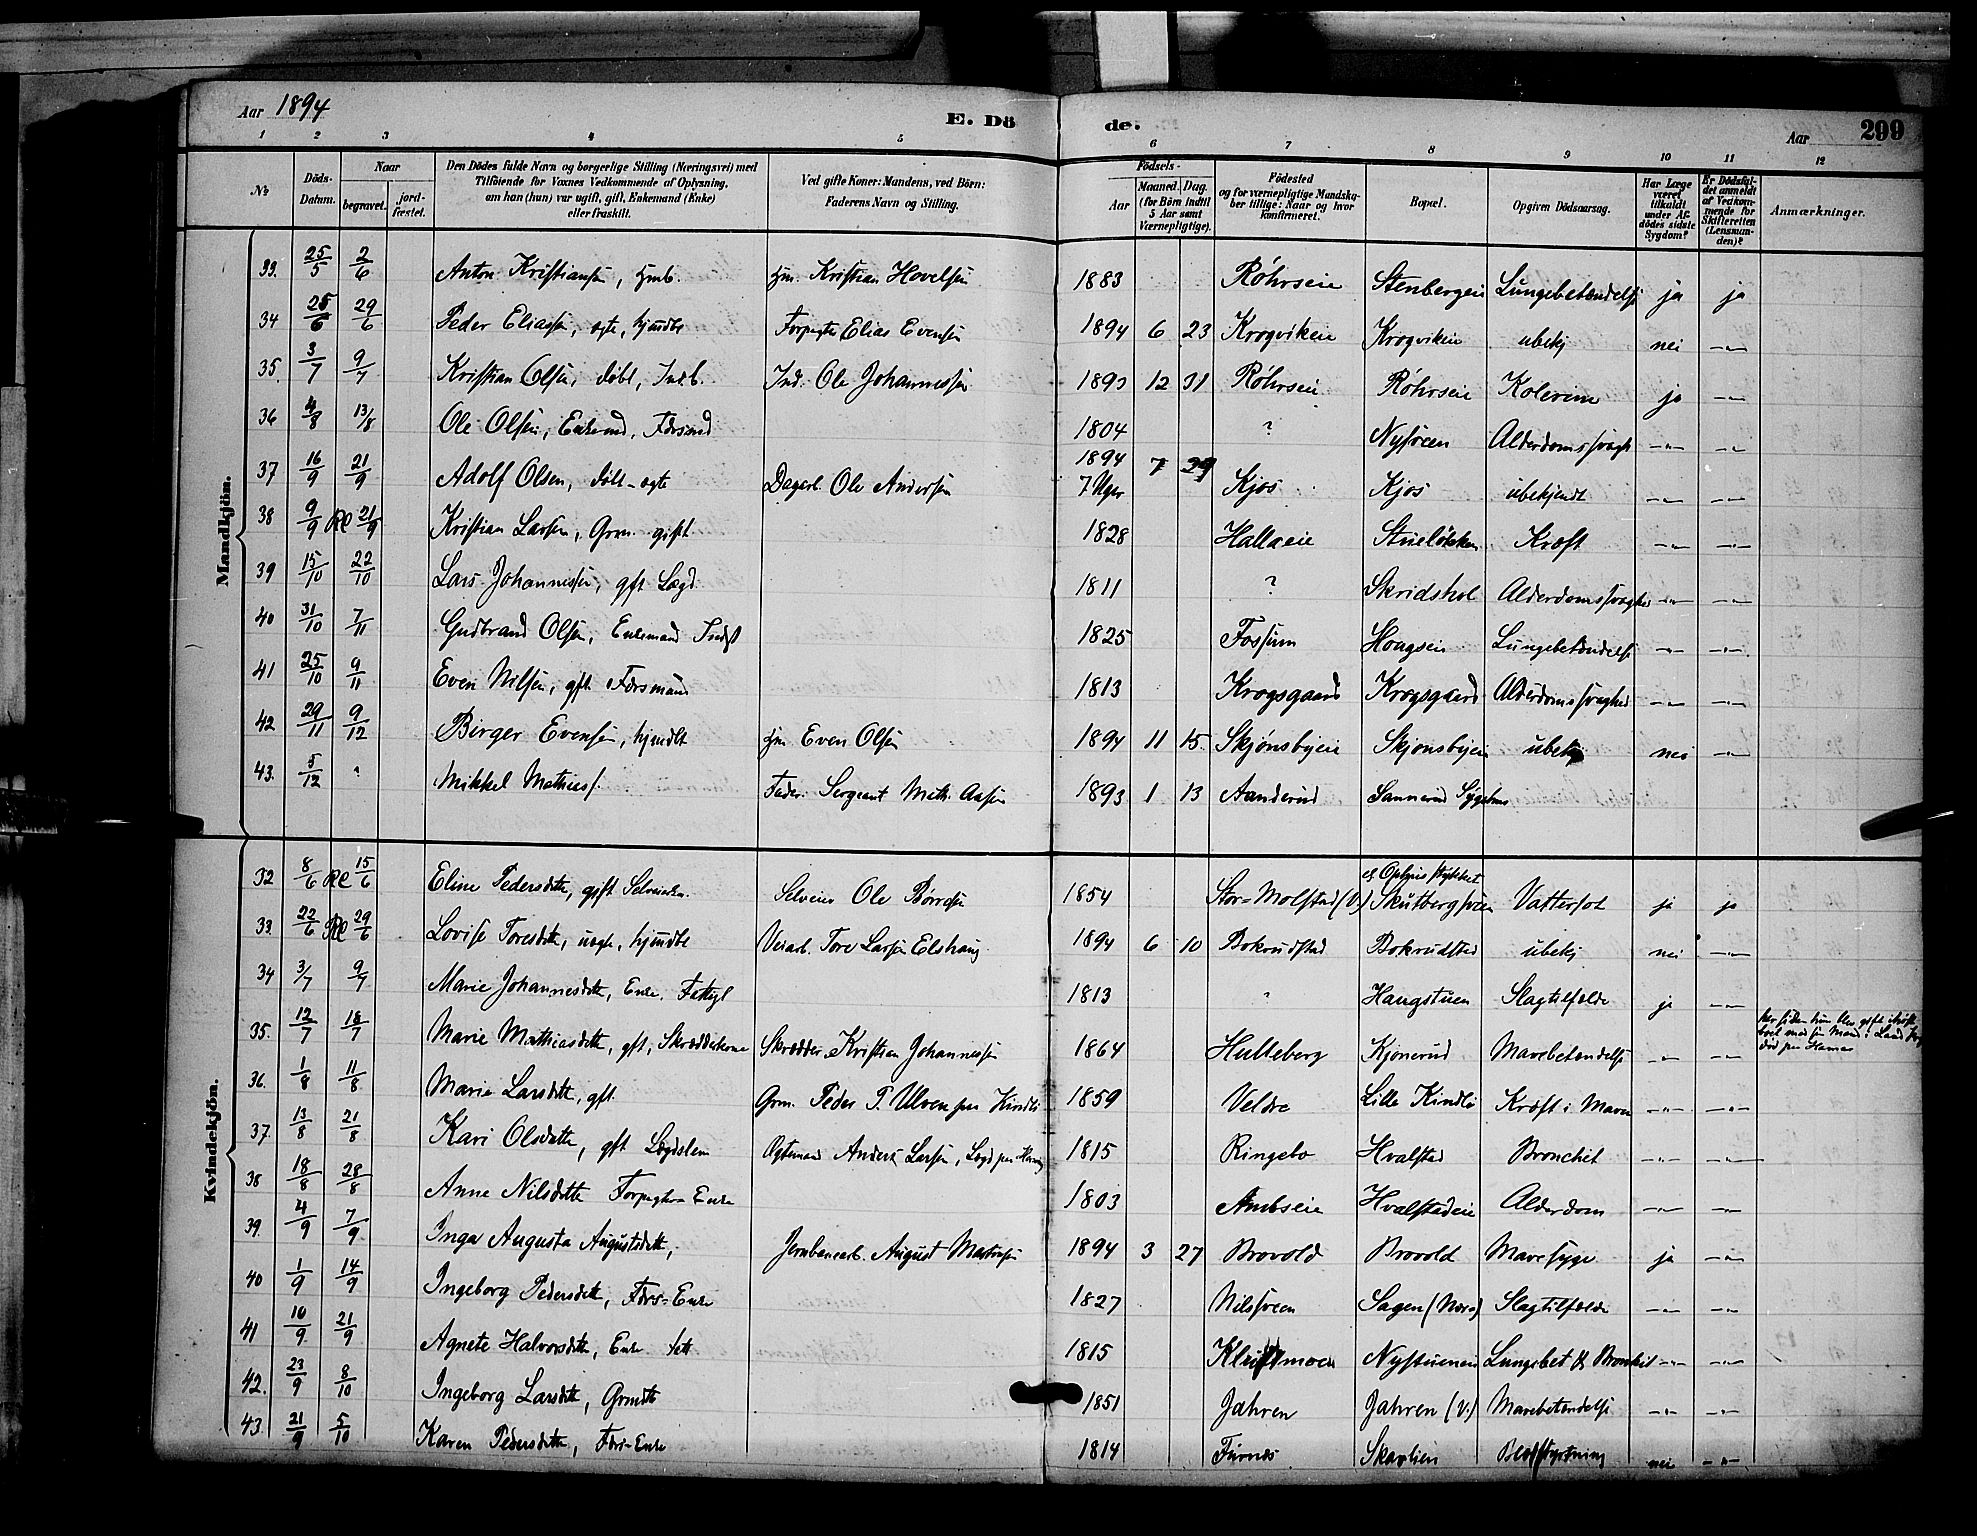 Aar 1894 E. Dö de. Aar 299
1 2 3 4 5 6 7 8 9 10 11 12
No
Döds-Datum.
Naar
begravet.
jord-fæstet.
Den Dödes fulde Navn og borgerlige Stilling (Næringsvei) med
Tilföiende for Voxnes Vedkommende af Oplysning,
om han (hun) var ugift, gift, Enkemand (Enke)
eller fraskilt.
Ved gifte Koner: Mandens, ved Börn:
Faderens Navn og Stilling.
Födsels-
Aar
Maaned. Dag.
(for Börn indtil
5 Aar samt
Værnepligtige).
Födested
og for værnepligtige Mandska-
ber tillige: Naar og hvor
konfirmeret.
Bopæl.
Opgiven Dödsaarsag.
Har Læge
været
tilkaldt
under Af-
dödes sidste
Sygdom?
Er Dödsfal-
det anmeldt
af Vedkom-
mende for
Skifteretten
(Lensman-
den)?
Anmærkninger.
Mandkjön.
33. 25/5 2/6 Anton Kristiansen, Hmb. Hm. Kristian Hovelsen 1883 Röhrseie Stenbergeie Lungebetændelse ja ja
34 25/6 29/6 Peder Eliassen, ægte, hjemdbt Forpagter Elias Evensen 1894 6 23 Krogviken Krogviken ubekj nei -"-
35. 3/7 9/7 Kristian Olsen, döbt, Indb. Ind. Ole Johannessen 1893 12 31 Röhrseie Röhrseie Kolerine ja -"-
36 4/8 13/8 Ole Olsen, Enkemd, Forsmd 1804 ? Nysveen Alderdomssvagh -"- -"-
37 16/9 21/9 Adolf Olsen, döbt - ægte Dagarb. Ole Andersen 1894 7 29 7 Uger Kjos Kjos ubekjendt -"- -"-
38 9/9 21/9 Kristian Larsen, Grm. gift 1828 Hallaeie Stuelökken Kræft -"- -"-
39 15/10 22/10 Lars Johannessen, gft Lægd 1811 ? Skridshol Alderdomssvaghed -"- -"-
40 31/10 7/11 Gudbrand Olsen, Enkemand Indst 1825 Fossum Hougseie Lungebetændelse -"- -"-
41 25/10 9/11 Even Nilsen, gft Forsmand 1813 Krogsgaard Krogsgaard Alderdomssvaghed -"- -"-
42 29/11 9/12 Birger Evensen, hjemdbt Hm Even Olsen 1894 11 15 Skjönsbyeie Skjonsbyeie ubekj nei -"-
43. 5/12 " Mikkel Mathiess. Fader. Sergeant Math. Aasen 1893 1 13 Aanderud Sannerud Sygehus
Kvindekjön.
32 8/6 15/6 Eline Pedersdtr, gift Selveierkn. Selveier Ole Börresen 1854 Stor-Molstad (V) Skutbergsveen Vattersot ja ja
33. 22/6 29/6 Lovise Toresdtr, uægte, hjemdbt Veiarb. Tore Larsen Elshaug 1894 6 10 Bokrudstad Bokrudstad ubekj nei -"-
34 3/7 9/7 Marie Johannesdtr, Enke. Fattigl 1813 " Haugstuen Slagtilfælde ja -"-
35. 12/7 18/7 Marie Mathiasdtr, gft, Skrædderkone Skrædder Kristian Johannessen 1864 Hulleberg Kjonerud Mavebetændelse -"- -"-
36. 1/8 11/8 Marie Larsdtr, gft. Grm. Peder P. Ulven paa Kindli 1859 Veldre Lille Kindli Kræft i Maven -"- -"-
37. 13/8 21/8 Kari Olsdatter, gft Lægdslem Ægtemand Anders Larsen, Lægd paa 1815 Ringebo Hvalstad Bronchit -"- -"-
38 18/8 28/8 Anne Nilsdatter Forpagter Enke 1803 Ambseie Hvalstadeie Alderdom -"- -"-
39. 4/9 7/9 Inga Augusta Augustsdtr, Jernbanearb. August Martinsen 1894 3 27 Brovold Brovold Mavesyge ja -"-
40 1/9 14/9 Ingeborg Pedersdtr, Fors-Enke 1827 Nilssveen Sagen (Næs) Slagtilfælde -"- -"-
41 10/9 21/9 Agnete Halvorsdtr, Enke fatt 1815 Nystueneie Lungebet & Bronkit -"- -"-
42. 23/9 8/10 Ingeborg Larsdtr, Grmdtr 1851 Jahren Jahren (V.) Mavebetændelse -"- -"-
43. 21/9 5/10 Karen Pedersdtr, Fors-Enke 1814 Furnes Skavlien Blodstyrtning nei -"-